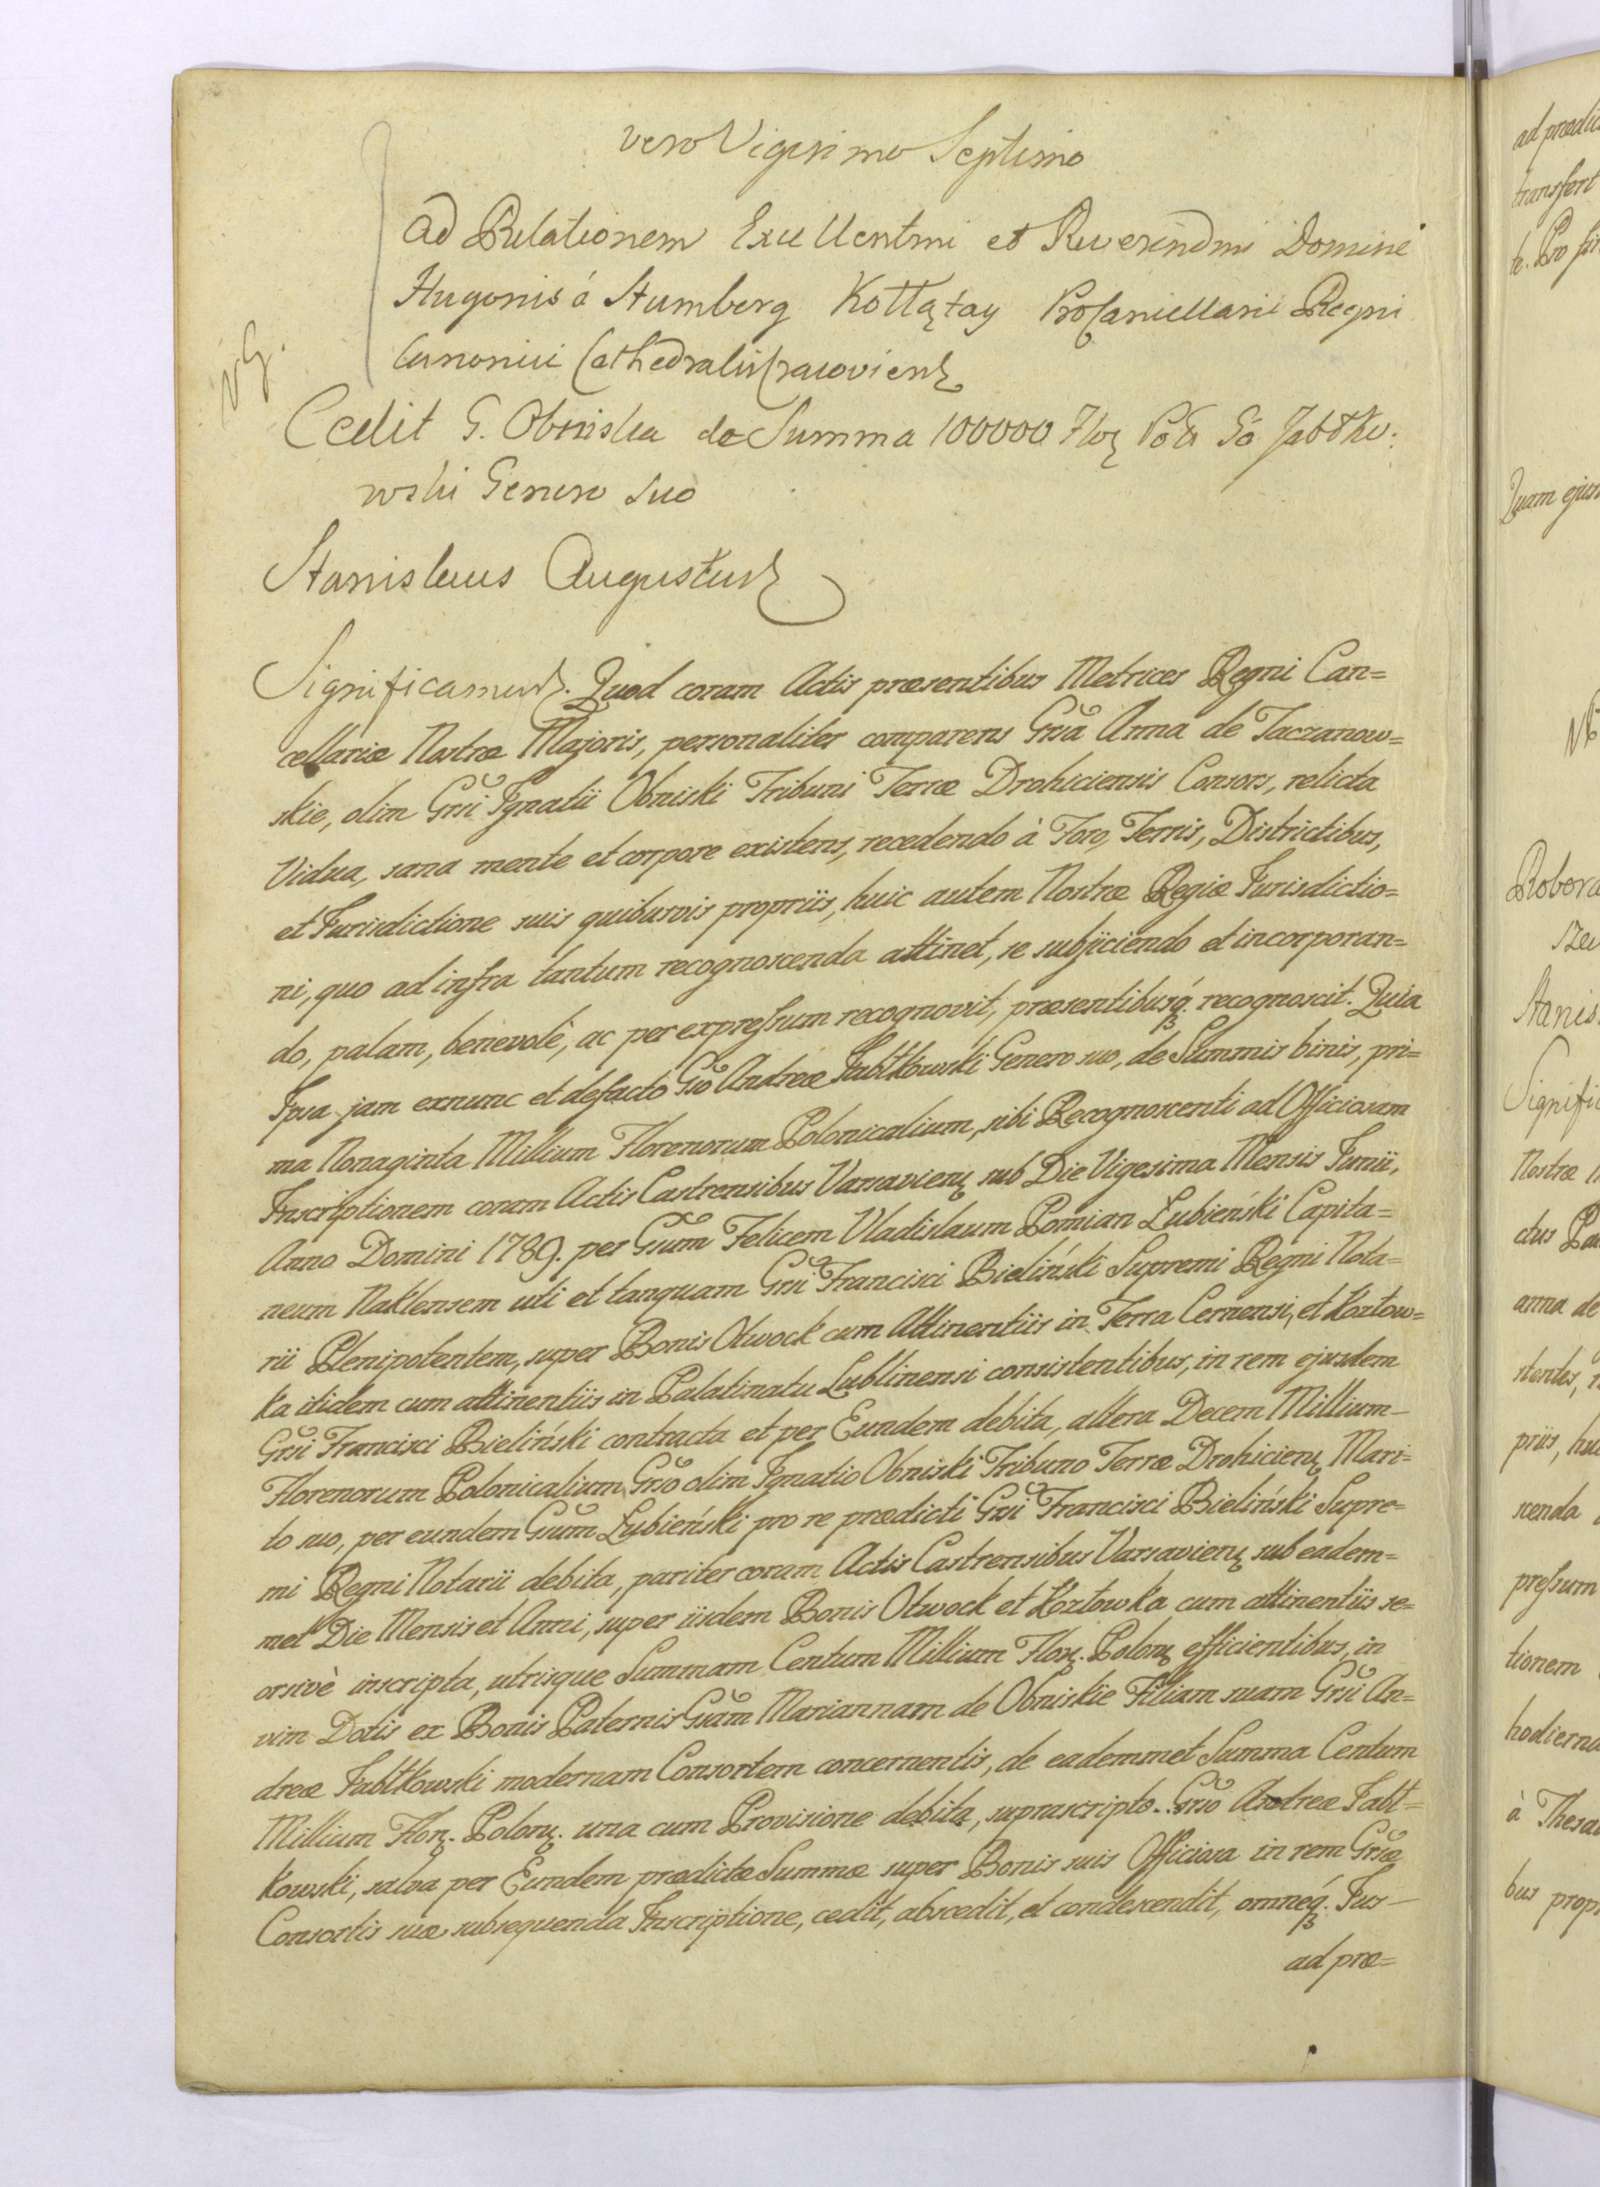 vero Vigesimo Septimo
Ad Relationem Excellentmi et Reverendmi Domini
Hugonis á Stumberg Kołłątay ProCancellarii Regni
Canonici Cathedralis Cracovien
NB.
Cedit G. Obniska de Summa 100000 Flor Pol Go Jabłko:
wski Genero suo
Stanislaus Augustus
Significamus. Quod coram Actis præsentibus Metrices Regni Can=
cellariæ Nostræ Majoris, personaliter comparens Grsa Anna de Taczanow=
skie, olim Grsi Ignatii Obniski Tribuni Terræ Drohiciensis Consors, relicta
Vidua, sana mente et corpore existens, recedendo à Foro, Terris, Districtibus,
et Jurisdictione suis quibusvis propriis, huic autem Nostræ Regiæ Jurisdictio=
ni, quo ad infra tantum recognoscenda attinet, se subjiciendo et incorporan=
do, palam, benevolè, ac per expressum recognovit, præsentibusq. recognoscit. Quia
Ipsa jam exnunc et defacto Gso Andreæ Jabłkowski Genero suo, de Summis binis, pri=
ma Nonaginta Millium Florenorum Polonicalium, sibi Recognoscenti ad Officiosam
Inscriptionem coram Actis Castrensibus Varsavien sub Die Vigesima Mensis Junii,
Anno Domini 1789. per Gsum Felicem Vladislaum Pomian Łubieński Capita=
neum Naklensem uti et tanquam Grsi Francisci Bieliński Supremi Regni Nota=
rii Plenipotentem, super Bonis Otwock cum Attinentiis in Terra Cernensi, et Kozłow=
ka itidem cum attinentiis in Palatinatu Lublinensi consistentibus, in rem ejusdem
Grsi Francisci Bieliński contracta et per Eundem debita, altera Decem Millium
Florenorum Polonicalium Grso olim Ignatio Obniski Tribuno Terræ Drohicien Mari=
to suo, per eundem Gsum Łubieński pro re prædicti Grsi Francisci Bieliński Supre=
mi Regni Notarii debita, pariter coram Actis Castrensibus Varsavien sub eadem=
met Die Mensis et Anni, super iisdem Bonis Otwock et Kozłowka cum attinentiis se=
orsivè inscripta, utrisque Summam Centum Millium Flor. Polon efficientibus, in
vim Dotis ex Bonis Paternis Gsam Mariannam de Obniskie Filiam suam Grsi An=
dreæ Jabłkowski modernam Consortem concernentis, de eademmet Summa Centum
Millium Flor. Polon. una cum Provisione debita, suprascripto Grso Andreæ Jabł=
kowski, salva per Eundem prædictæ Summæ super Bonis suis Officiosa in rem Grsæ
Consortis suæ subsequenda Inscriptione, cedit, abscedit, et condescendit, omneq. Jus
ad præ=
ad prædic
transfert
te. Pro
Quam ejus
NB
Robora
Stanis
Signific
Nostræ
ctus
anna de
stentes,
priis, hu
scenda
pressum
tionem
hodierna
à Thesau
bus propr